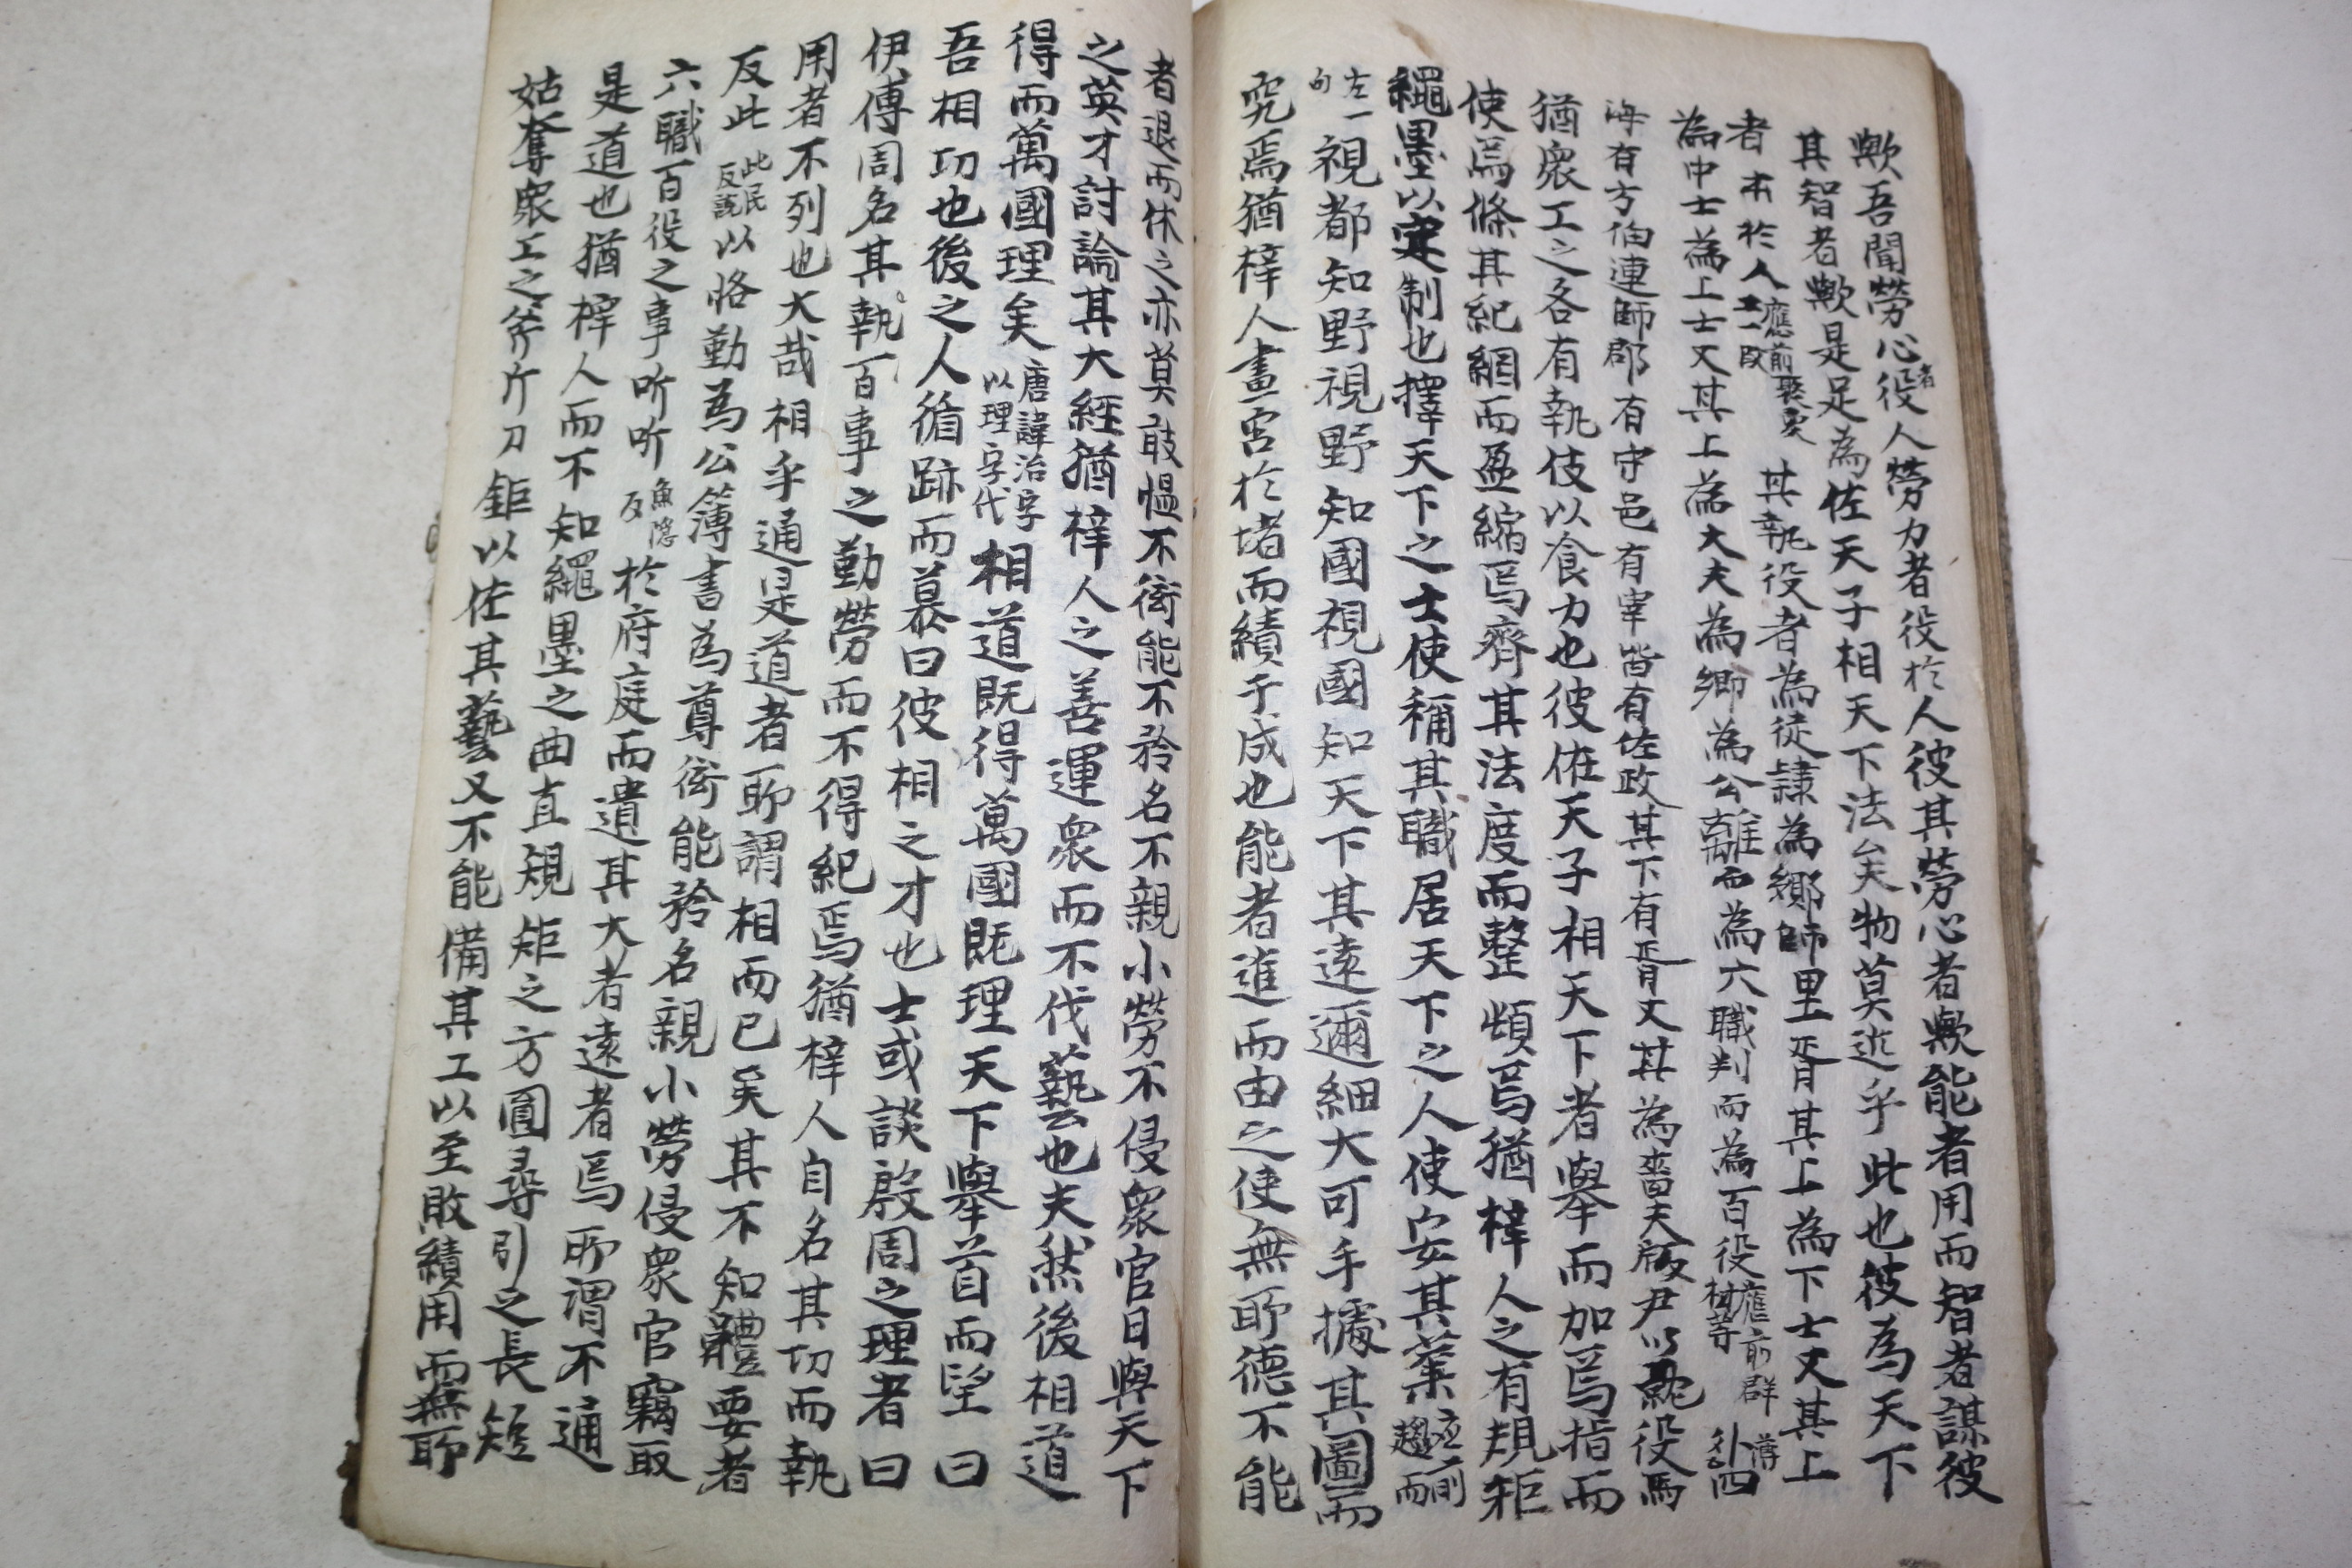 歟吾聞勞心者役人勞力者役於人彼其勞心者歟能者用而智者謀彼
其智者歟是足為佐天子相天下法矣物莫近乎此也彼為天下
者本於人應前聚衆工一段其執役者為徒隸為鄉師里胥其上為下士又其上
為中士為上士又其上為大夫為卿為公離而為六職判而為百役應前群材等外薄四
海有方伯連師郡有守邑有宰皆有佐政其下有胥又其為嗇夫版尹以就役焉
猶衆工之各有執伎以食力也彼佐天子相天下者舉而加焉指而
使焉條其紀綱而盈縮焉齊其法度而整頓焉猶梓人之有規矩
繩墨以定制也擇天下之士使稱其職居天下之人使安其業應前趨而
左一句視都知野視野知國視國知天下其遠邇細大可手據其圖而
究焉猶梓人畫宮於堵而績于成也能者進而由之使無所德不能
者退而休之亦莫敢慍不衒能不矜名不親小勞不侵衆官日與天下
之英才討論其大經猶梓人之善運衆而不伐藝也夫然後相道
得而萬國理矣唐諱治字以理字代相道既得萬國既理天下舉首而望曰
吾相功也後之人循跡而慕曰彼相之才也士或談殷周之理者曰
伊傅周名其執百事之勤勞而不得紀焉猶梓人自名其功而執
用者不列也大哉相乎通是道者所謂相而已矣其不知體要者
反此此民反說以恪勤為公簿書為尊衒能矜名親小勞侵衆官竊取
六職百役之事听听魚隱反於府庭而遺其大者遠者焉所謂不通
是道也猶梓人而不知繩墨之曲直規矩之方圓尋引之長短
姑奪衆工之斧斤刀鉅以佐其藝又不能備其工以至敗績用而無所